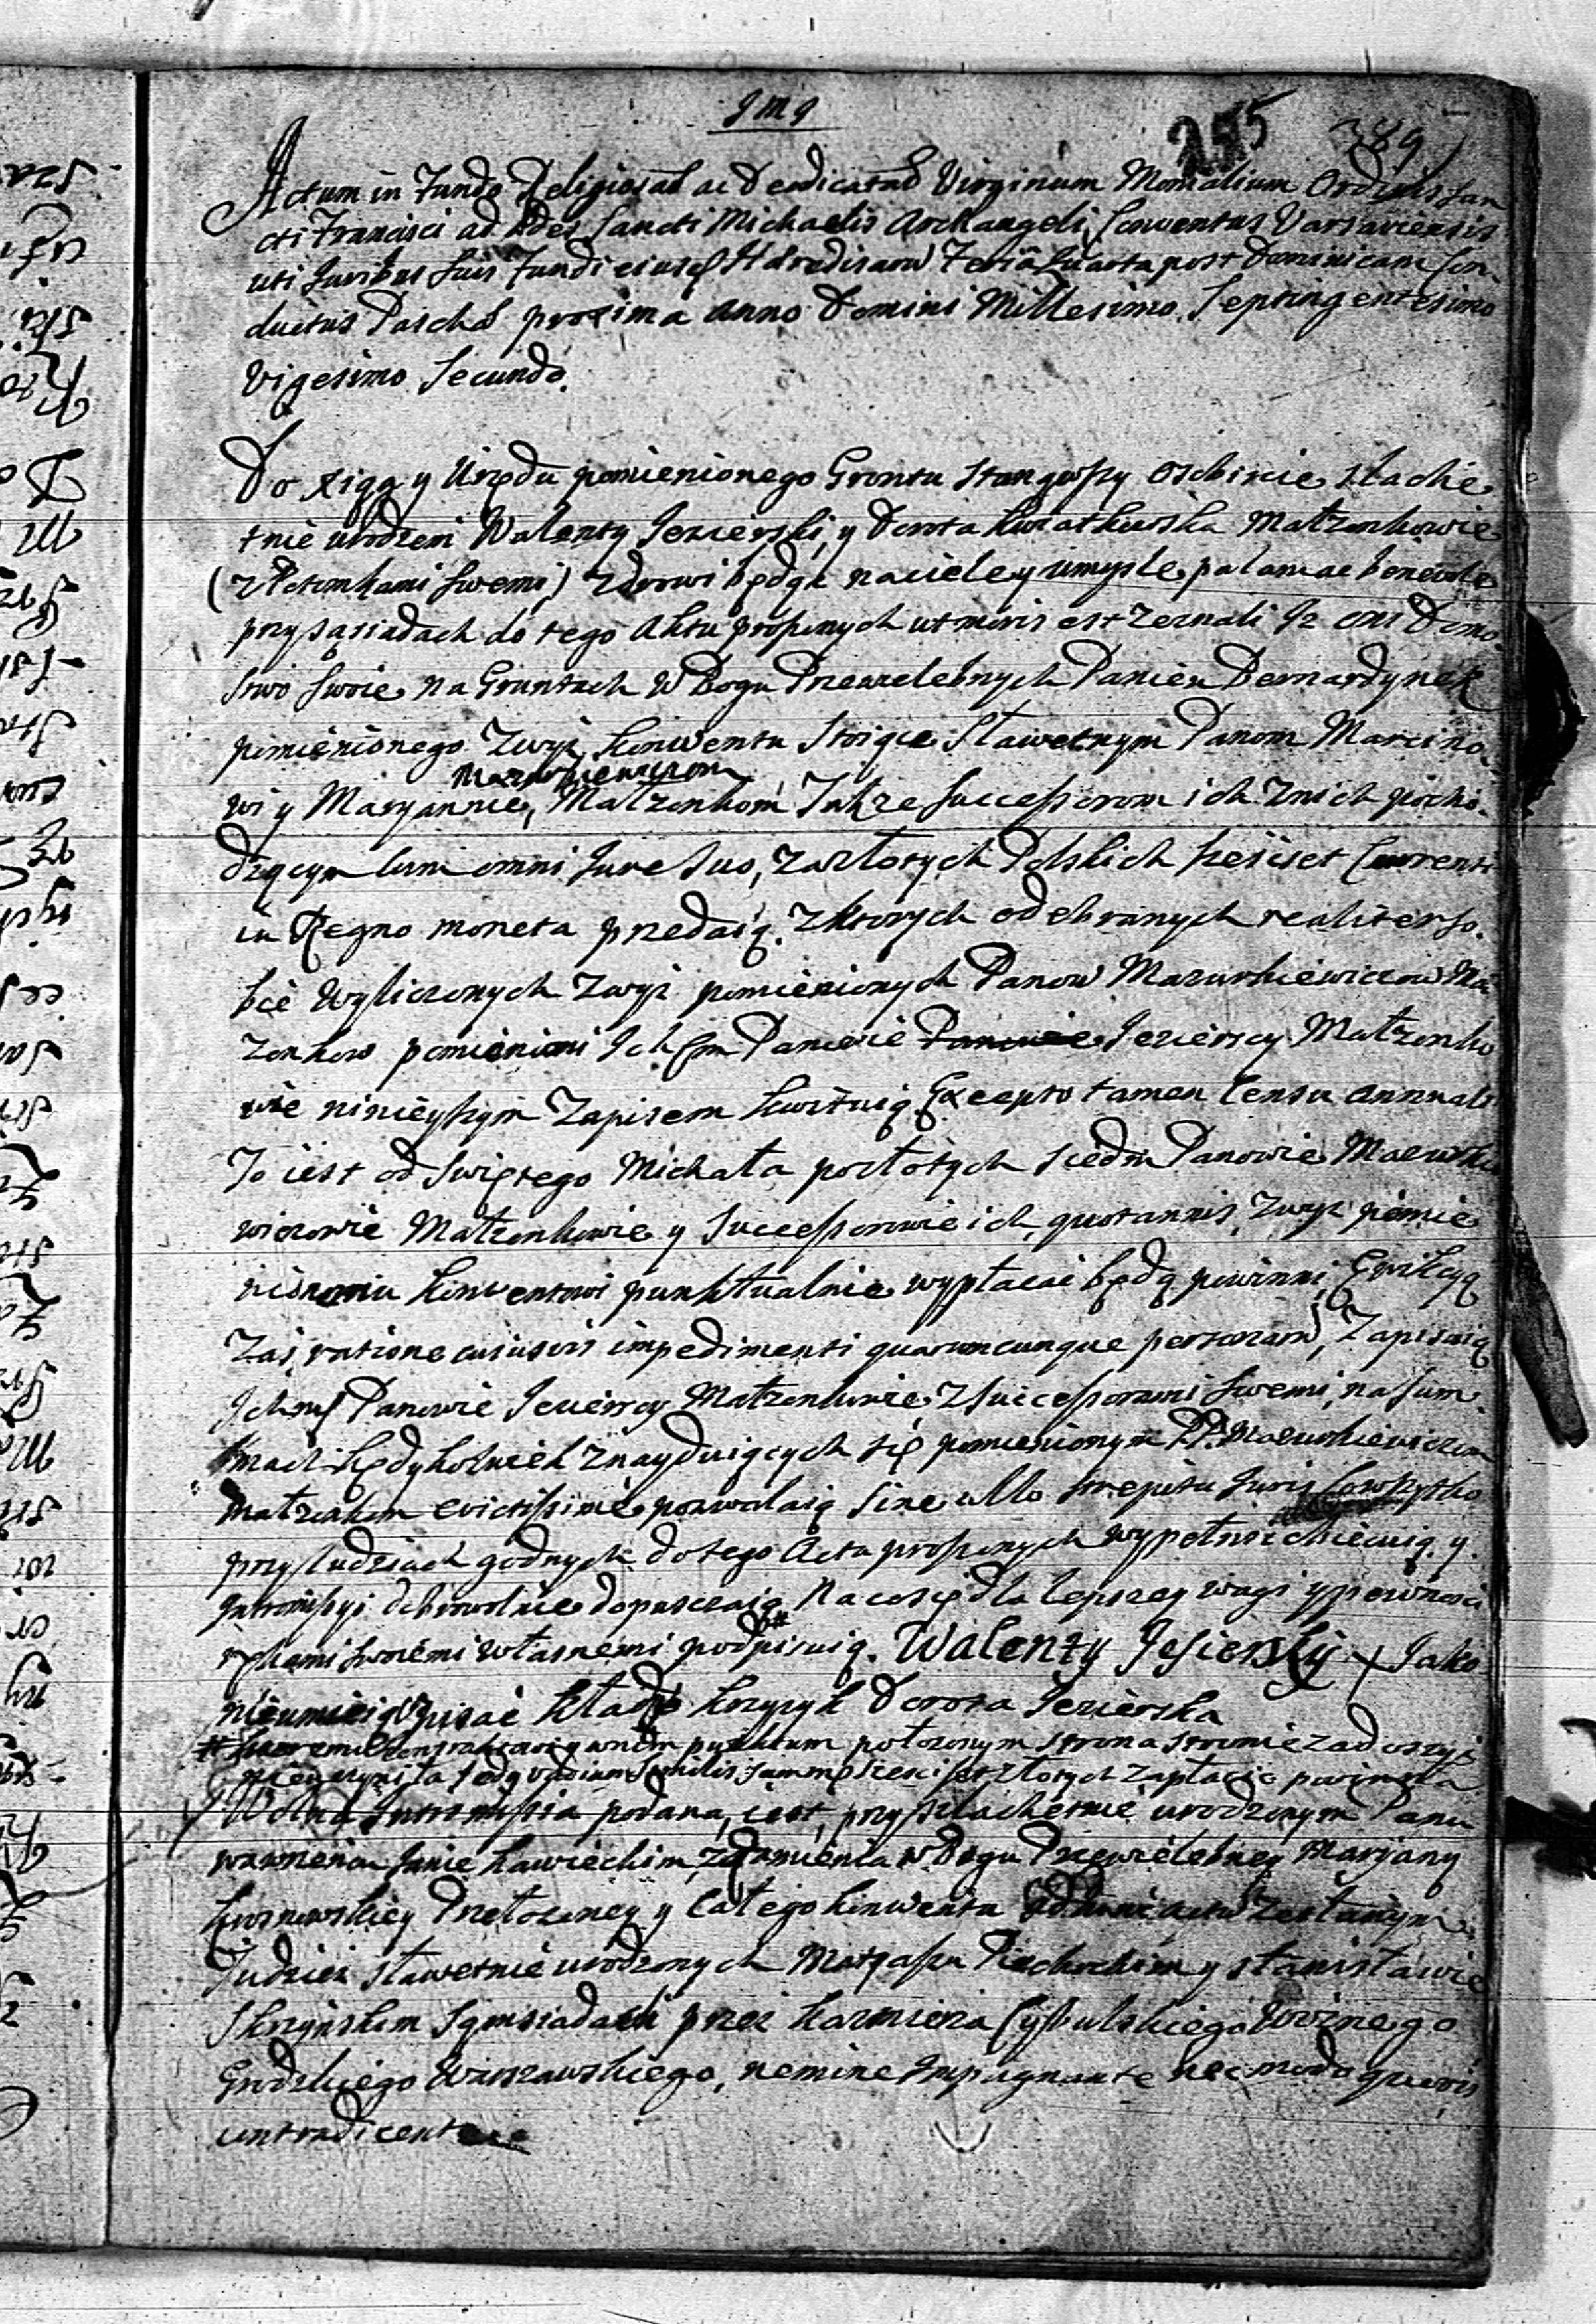 J M J
255 389
Actum in Fundo Religiosar ac Deodicatar Virginum Monialium Ordinis San
cti Francisci ad Ædes Sancti Michaelis Archangeli Conventus Varsaviensis
uti Juribus suis Fundi eiusd Hæredisarum Feria Quarta post Dominicam Con
ductus Paschæ proxima Anno Domini Millesimo Septingentesimo
Vigesimo Secundo.
Do xiąg y Urzędu pomienionego Grontu stanąwszy osobiscie szlache
tnie urodzeni Walenty Jezierski, y Dorota Kwiatkowska Małzonkowie
(z Potomkami swemi) zdrowi będąc na ciele y umysle, palam ac benevole
przy sąsiadach do tego Aktu proszonych ut moris est zeznali Iz oni Domo
stwo swoie na Gruntach w Bogu Przewielebnych Panien Bernardynek
pomienionego zwyz Konwentu stoiące Sławetnym Panom Marcino
Mazurkiewiczom
wi y Maryannie, Małzonkom, Takze Successorom ich z nich pocho
dzącym cum omni Jure suo, za złotych Polskich szescset Currenti
in Regno moneta przedaią. z ktorych odebranych realiter so
bie wyliczonych zwyz pomienionych Panow Mazurkiewiczow Mał
zonkow pomienieni Ichm Panowie Jezierscy Małzonko
wie ninieyszym Zapisem kwituią Excepto tamen Censu annuali
To iest od Swiętego Michała po złotych siedm Panowie Mazurkie
wiczowie Małzonkowie y Successorowie ich quotannis, zwyz pomie
nionemu Konwentowi punktualnie wypłacać będą powinni, Ewikcyą
Zaś ratione cuiusvis impedimenti quarumcunque personarum, Zapisuią
Ichm Panowie Jezierscy Małzonkowie z Successorami swemi, na Sum
mach kędykolwiek znayduiących się pomienionym PP. Mazurkiewiczom
Małzonkom evictissime pozwalaią sine ullo strepitu Juris Co wszytko
przy ludziach godnych do tego Actu proszonych wypełnić obiecuią y
Intromissyi dobrowolnie dopuszczaią Na co się dla lepszey wagi y pewnosci
rękami swoiemi własnemi podpisuią. Walenty Jesierskij + Jako
nieumieiąca pisać kładę krzyzyk Dorota Jezierska
położonym strona stronie zadosyc
nieuczyni ta tedy vadium similis summę szescset złotych zapłacic powinna
Wolna Intromissia podana iest, przy szlachetnie urodzonym Panu
Janie Kawieckim, z ramienia w Bogu Przewielebney Maryany
Przełozoney y całego Konwentu zesłanym
Tudziez sławetnie urodzonych Matyaszu Piechockim y Stanisławie
Skrzynskim Sąmsiadach przez Kazmierza Cybulskiego Woznego
Grodzkiego Warszawskiego, nemine impugnante nec modo quovis
contradicente